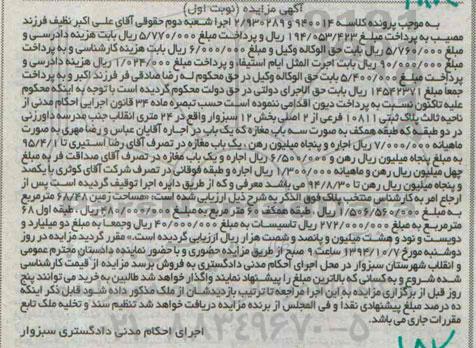 آگهی مزایده (نوبت اول)
به موجب پرونده کلاسه ۹۴۰۰۱۴ و ۲/۹۳۰۲۸۹ اجرا شعبه دوم حقوقی آقای علی اکبر نظیف فرزند
مصیب به پرداخت مبلغ ۱۹۴/۰۵۳/۴۲۳ ریال و پرداخت مبلغ ۵/۷۷۰/۰۰۰ ریال بابت هزینه دادرسی و
مبلغ ۵/۷۶۰/۰۰۰ ریال بابت حق الوکاله وکیل و مبلغ ۶/۰۰۰/۰۰۰ ریال بابت هزینه کارشناسی و به پرداخت
مبلغ ۹۰/۰۰۰/۰۰۰ ریال بابت اجرت المثل ایام استیفا، و پرداخت مبلغ ۱/۰۲۴/۰۰۰ ریال هزینه دادرسی و
پرداخت مبلغ ۵/۴۰۰/۰۰۰ ریال بابت حق الوکاله وکیل در حق محکوم له رضا صادقی فر فرزند اکبر و به پرداخت
مبلغ ۱۴۵۴۲۳۷۱ ریال بابت حق الاجرای دولتی در حق دولت محکوم گردیده است با توجه به اینکه محکوم
علیه تاکنون نسبت به پرداخت دیون اقدامی ننموده است حسب تبصره ماده ۳۴ قانون اجرایی احکام مدنی از
ناحیه ثالث پلاک ثبتی ۱۰۸۱۱ فرعی از ۲ اصلی بخش ۱۲ سبزوار واقع در ۲۴ متری انقلاب جنب مدرسه داورزنی
در دو طبقه که طبقه همکف به صورت سه باب مغازه که یک باب در اجاره آقایان عباس و رضا مهری به صورت
ماهیانه ۷/۰۰۰/۰۰۰ ریال اجاره و پنجاه میلیون رهن، یک باب مغازه در تصرف آقای رضا استیری تا ۹۵/۴/۱
به مبلغ پنجاه میلیون ریال رهن و ۶/۵۰۰/۰۰۰ ریال اجاره و یک باب مغازه در تصرف آقای صداقت فر به مبلغ
چهل میلیون ریال رهن و ماهیانه ۱/۳۰۰/۰۰۰ ریال اجاره و طبقه فوقانی در تصرف شرکت آقای کوثری با یکصد
و پنجاه میلیون ریال رهن تا ۹۴/۸/۳۰ می باشد معرفی و که از طریق دایره اجرا توقیف گردیده است پس از
ارجاع امر به کارشناس منتخب پلاک فوق الذکر به شرح ذیل ارزیابی شده است: مساحت زمین ۶۸/۴۸ مترمربع
به مبلغ ۱/۵۰۶/۵۶۰/۰۰۰ ریال، طبقه همکف ۶۰ متر مربع به مبلغ ۴۸۰/۰۰۰/۰۰۰ ریال، طبقه اول ۶۸
مترمربع به مبلغ ۲۷۲/۰۰۰/۰۰۰ ریال تاسیسات به مبلغ ۴۰/۰۰۰/۰۰۰ ریال و جمعاً به مبلغ دو میلیارد و
دویست و نود و هشت میلیون و پانصد و شصت هزار ریال ارزیابی گردیده است.» مقرر گردید مزایده در روز
دوشنبه مورخ ۱۳۹۴/۱۰/۷ ساعت ۹ صبح از طریق مزایده حضوری و با حضور نماینده دادستان محترم عمومی
و انقلاب شهرستان سبزوار در محل اجرای احکام مدنی دادگستری به فروش برسد مزایده از قیمت کارشناسی
شده شروع و به کسانی که بالاترین مبلغ را پیشنهاد نمایند واگذار خواهد شد طالبین به خرید می توانند پنج
روز قبل از برگزاری مزایده به این اجرا مراجعه تا ترتیب بازدیدشان از ملک مذکور داده شود قابل ذکر اینکه
ده درصد مبلغ پیشنهادی نقدا و فی المجلس از برنده مزایده دریافت خواهد شد تنظیم سند و تخلیه ملک تابع
مقررات جاری می باشد.
اجرای احکام مدنی دادگستری سبزوار